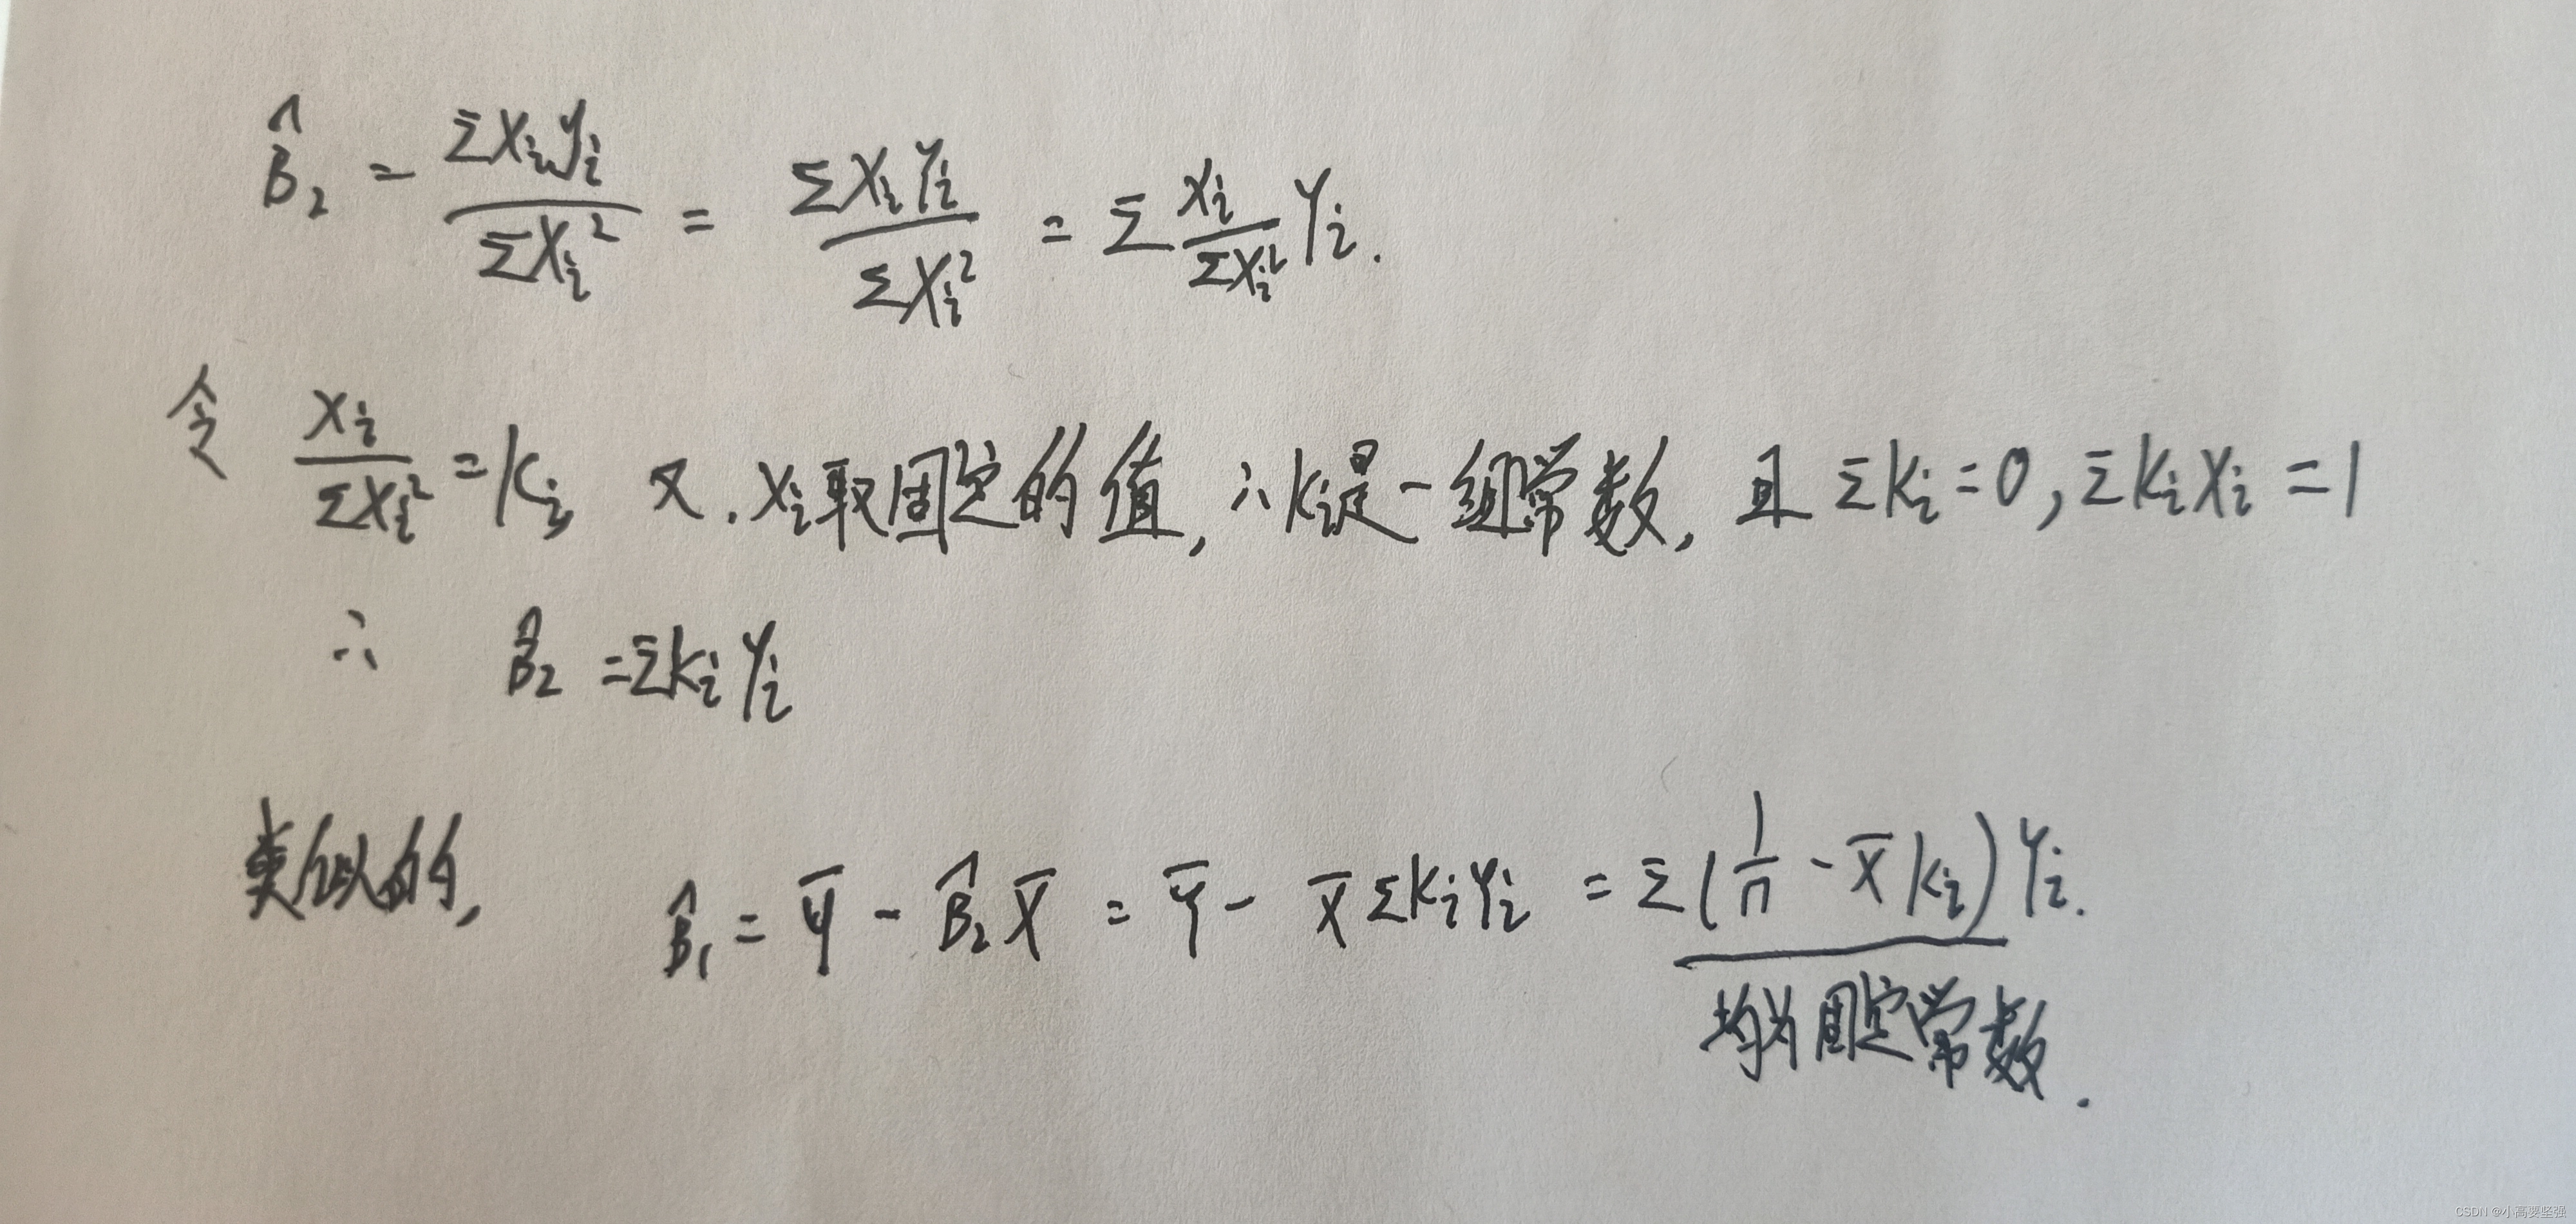 β̂₂ = Σxᵢyᵢ / Σxᵢ² = ΣxᵢYᵢ / Σxᵢ² = Σ xᵢ/Σxᵢ² Yᵢ.
令 xᵢ/Σxᵢ² = kᵢ, 又. xᵢ取固定的值, ∴ kᵢ是一组常数, 且 Σkᵢ=0, ΣkᵢXᵢ=1
∴ β̂₂ = ΣkᵢYᵢ
类似的, β̂₁ = Ȳ - β̂₂X̄ = Ȳ - X̄ΣkᵢYᵢ = Σ(1/n - X̄kᵢ)Yᵢ.
均为固定常数.
CSDN @小高要坚强